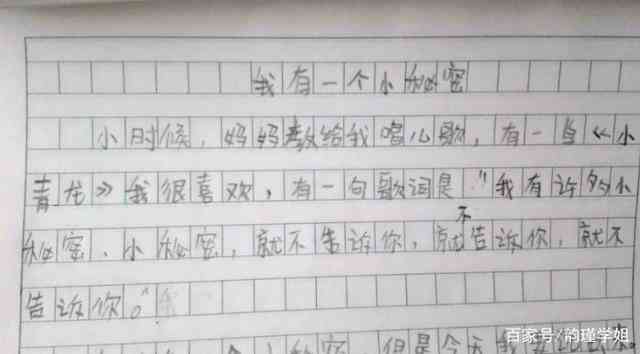 我有一个小秘密
小时候，妈妈教给我唱儿歌，有一首《小
青龙》我很喜欢，有一句歌词是“我有许多小
秘密、小秘密，就不告诉你，就不告诉你，就不
告诉你。”
秘密 但是今天
百家号/韵瑾学姐